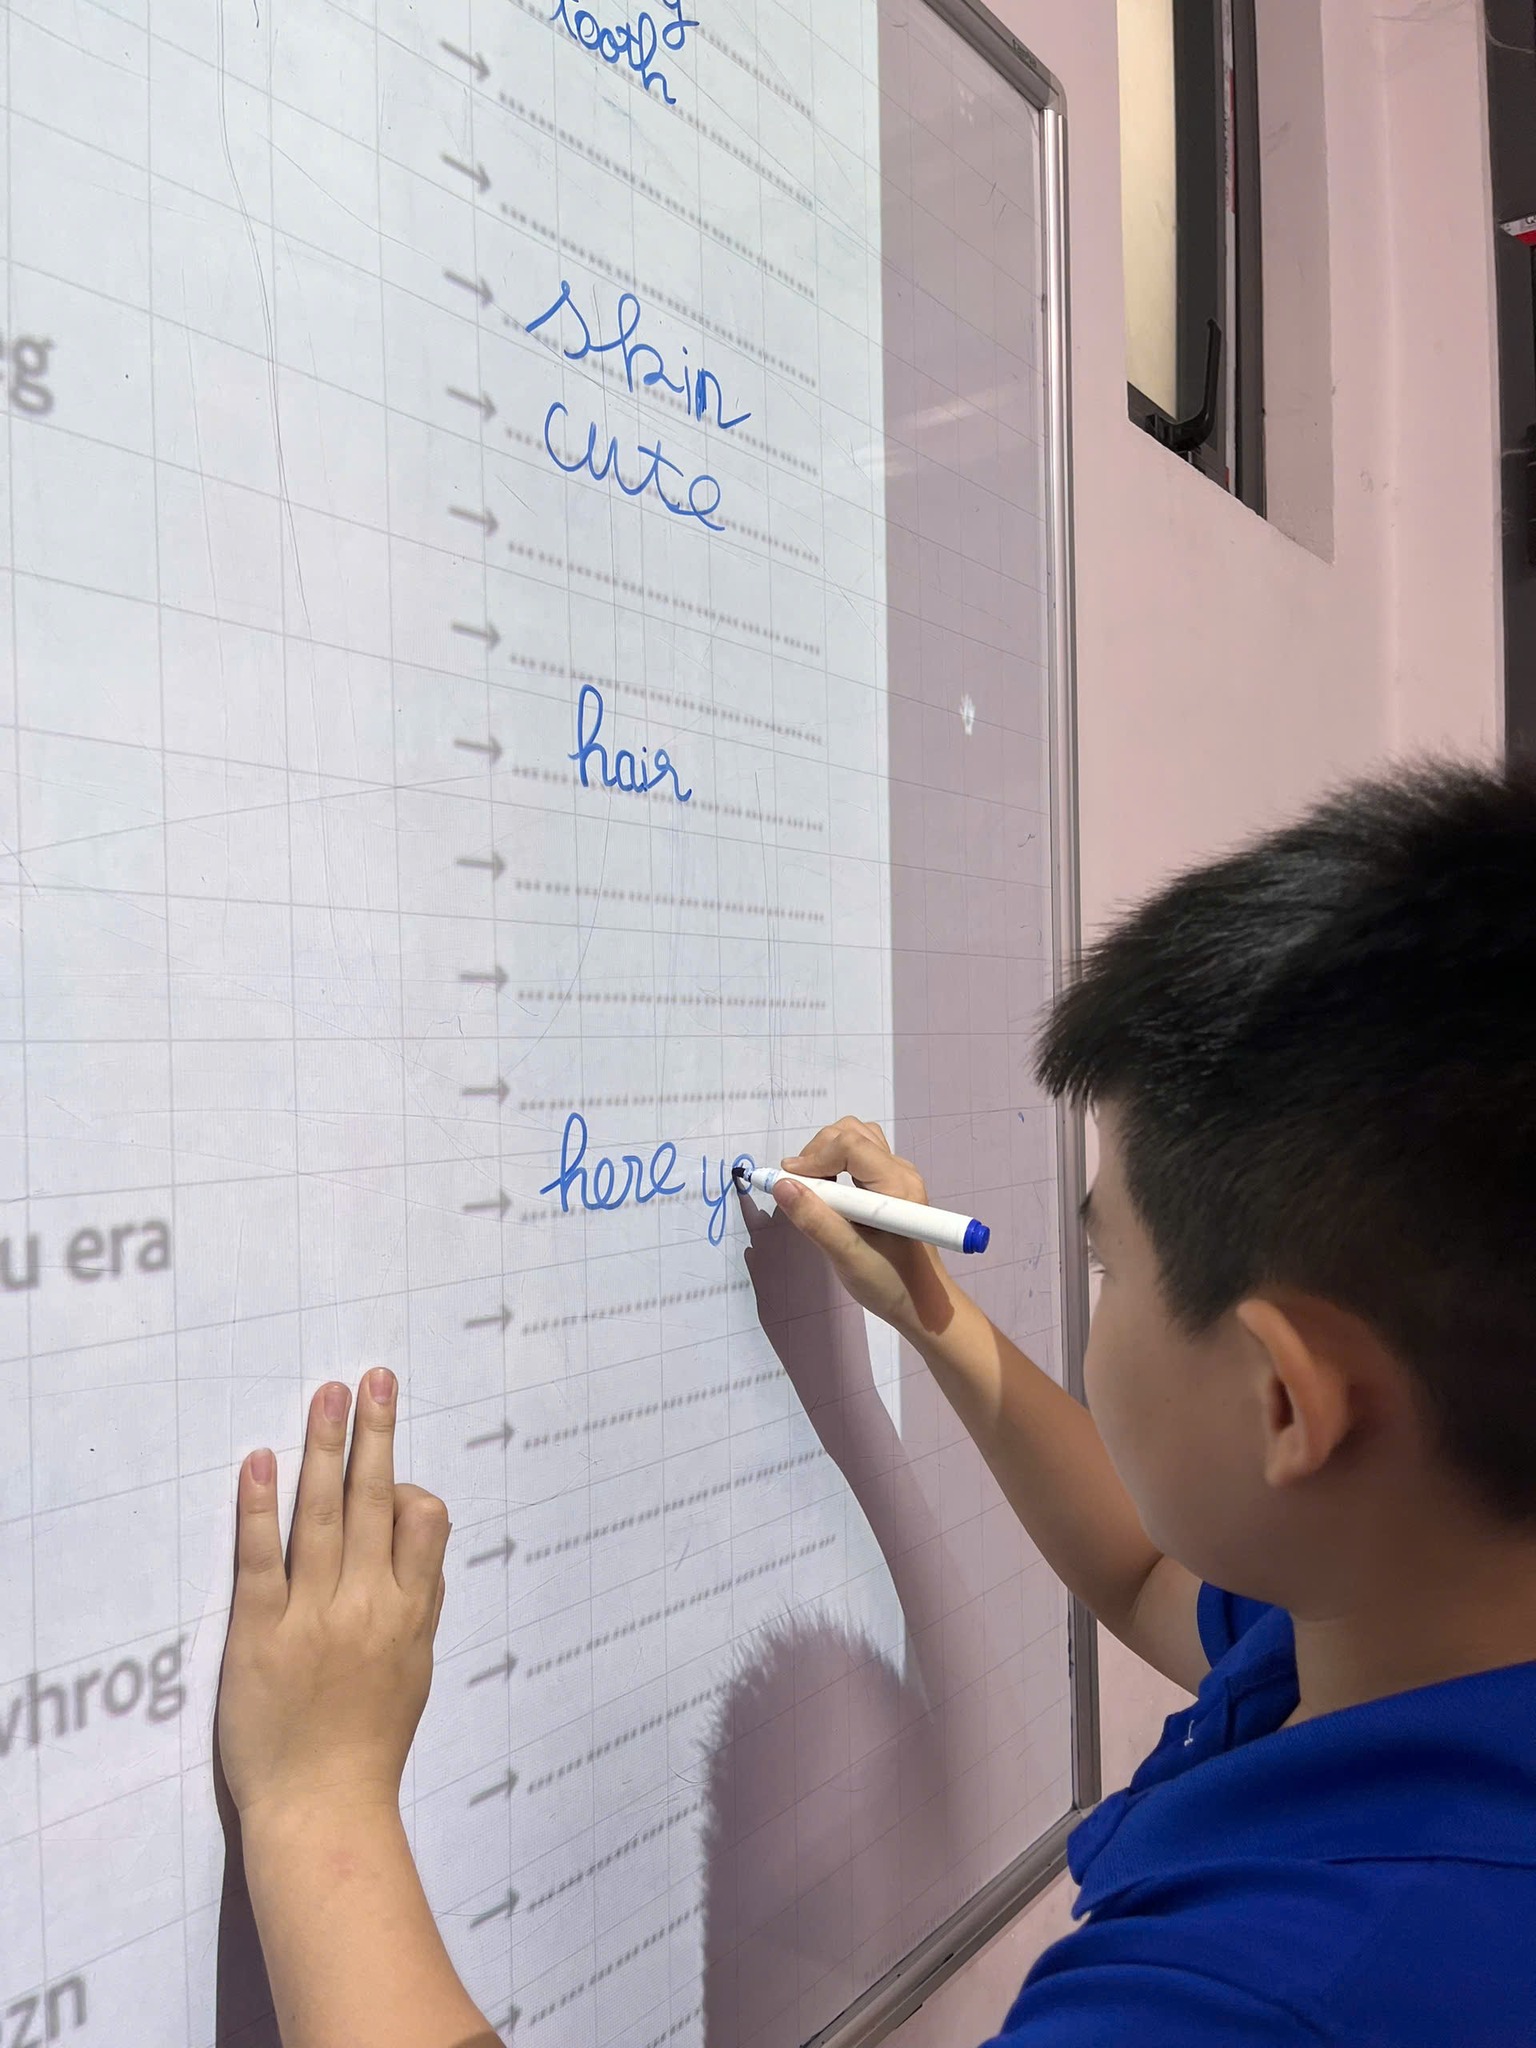 tooth
skin
eg
cute
hair
here yo
u era
whrog
zn